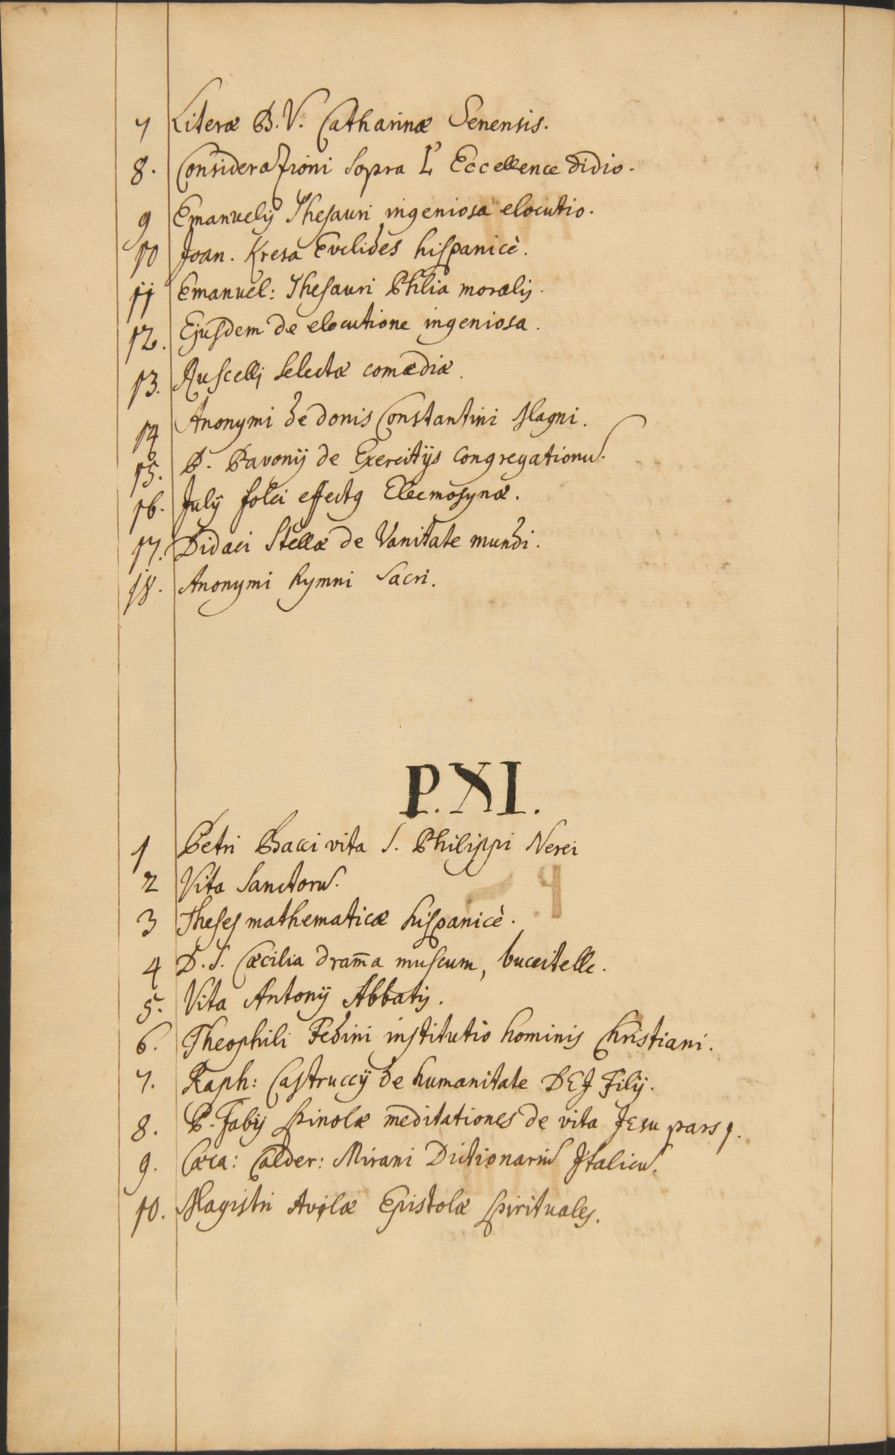 7 Literæ B. V. Catharinæ Senensis.
8. Considerazioni sopra L' Eccellence didio.
9 Emanuelij Thesauri ingeniosa elocutio.
10 Joan. Kresa Euclides hispanicè.
11 Emanuel: Thesauri Philia moralis.
12. Ejusdem de elocutione ingeniosa.
13. Ruscellj selectæ comædiæ.
14 Anonymi de donis Constantini Magni.
15. P. Pavonij de Exercitijs Congregationū.
16. Julij folci effectus Eleemosynæ.
17. Didaci Stellæ de Vanitate mundi.
18. Anonymi hymni Sacri.
P. XI.
1 Petri Bacci vita S. Philippi Nerei
2 Vita Sanctorū.
3 Theses mathematicæ hispanicè.
4 D. S. Cæcilia dram̄a muscum,
5. Vita Antonij Abbatis.
6. Theophili Fedini institutio hominis Christiani.
7. Raph: Castruccij de humanitate DEJ Filij.
8. P. Fabij Spinolæ meditationes de vita Jesu pars 1.
9. Cæca: Calder: Mirani Dictionariū Jtalicū.
10. Magistri Avilæ Epistolæ spirituales.